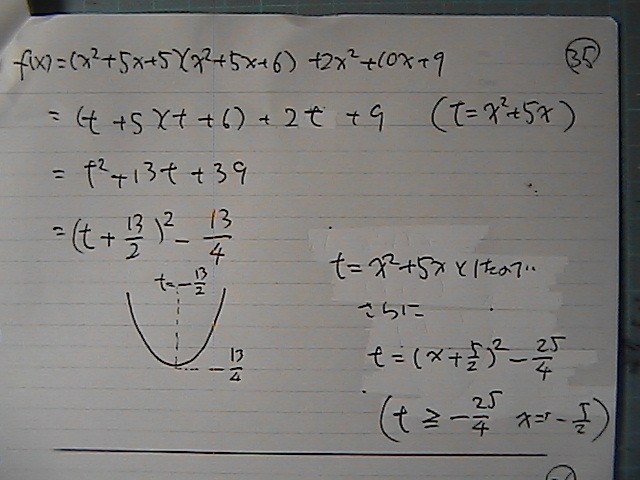 ㉟
f(x)=(x²+5x+5)(x²+5x+6)+2x²+10x+9
=(t+5)(t+6)+2t+9 (t=x²+5x)
=t²+13t+39
=(t+13/2)²-13/4
t=-13/2
-13/4
t=x²+5xとしたので
さらに
t=(x+5/2)²-25/4
(t≧-25/4 x=-5/2)